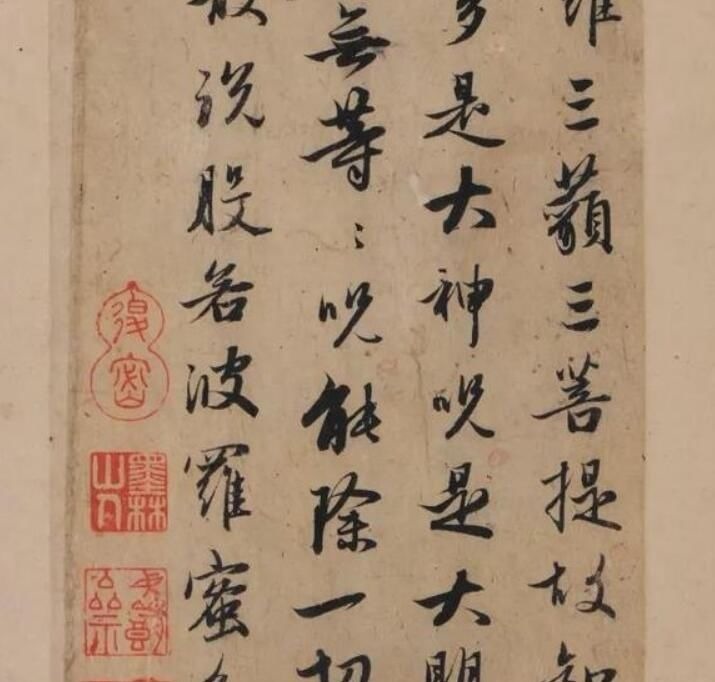 羅三藐三菩提故知
多是大神呪是大明
無等〻呪能除一切
故説般若波羅蜜多
墨林山人